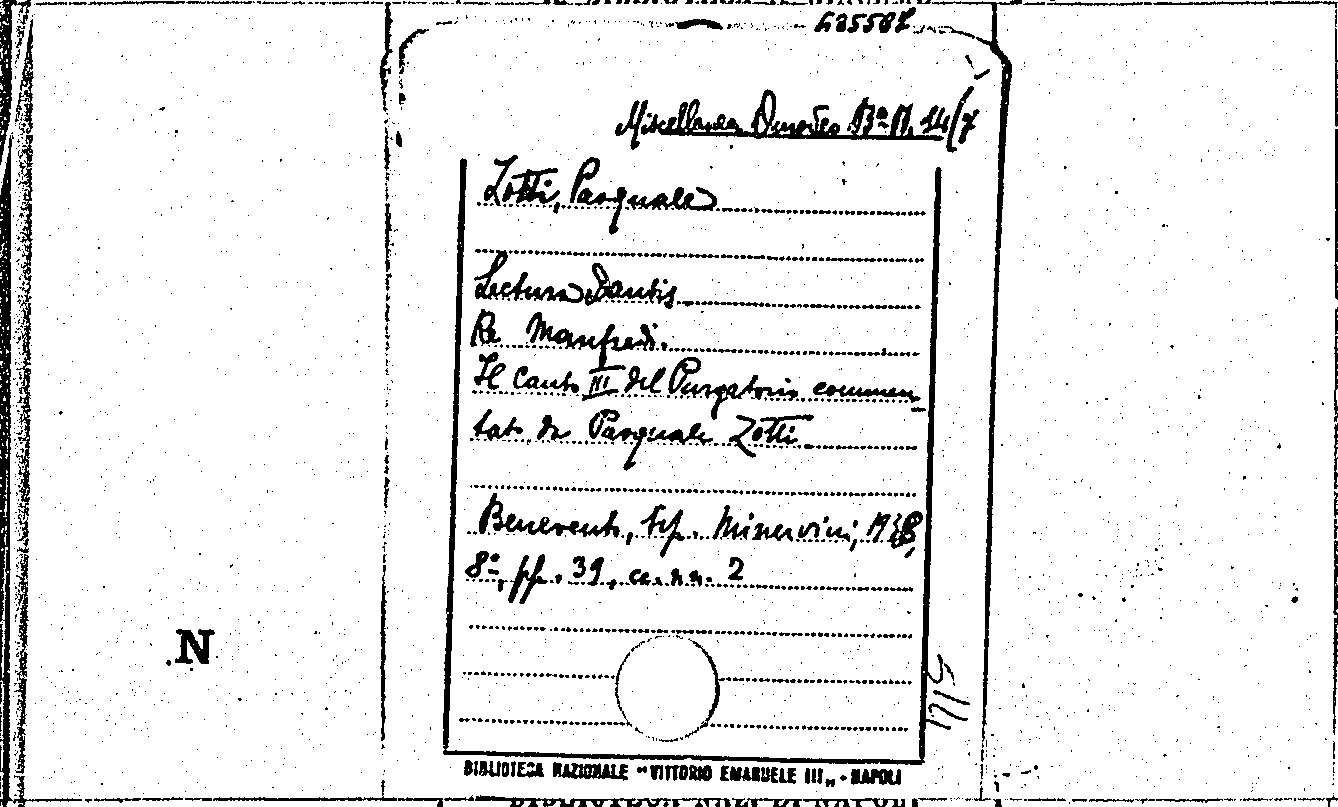 635587
Miscellanea B.a M. 14/7
Zotti, Pasquale
Lectura Dantis
Re Manfredi.
Il Canto III del Purgatorio commen
tato da Pasquale Zotti
Benevento, tip. Minervini,
8º, pp. 39, cc. nn. 2
N
BIBLIOTECA NAZIONALE "VITTORIO EMANUELE III„ - NAPOLI